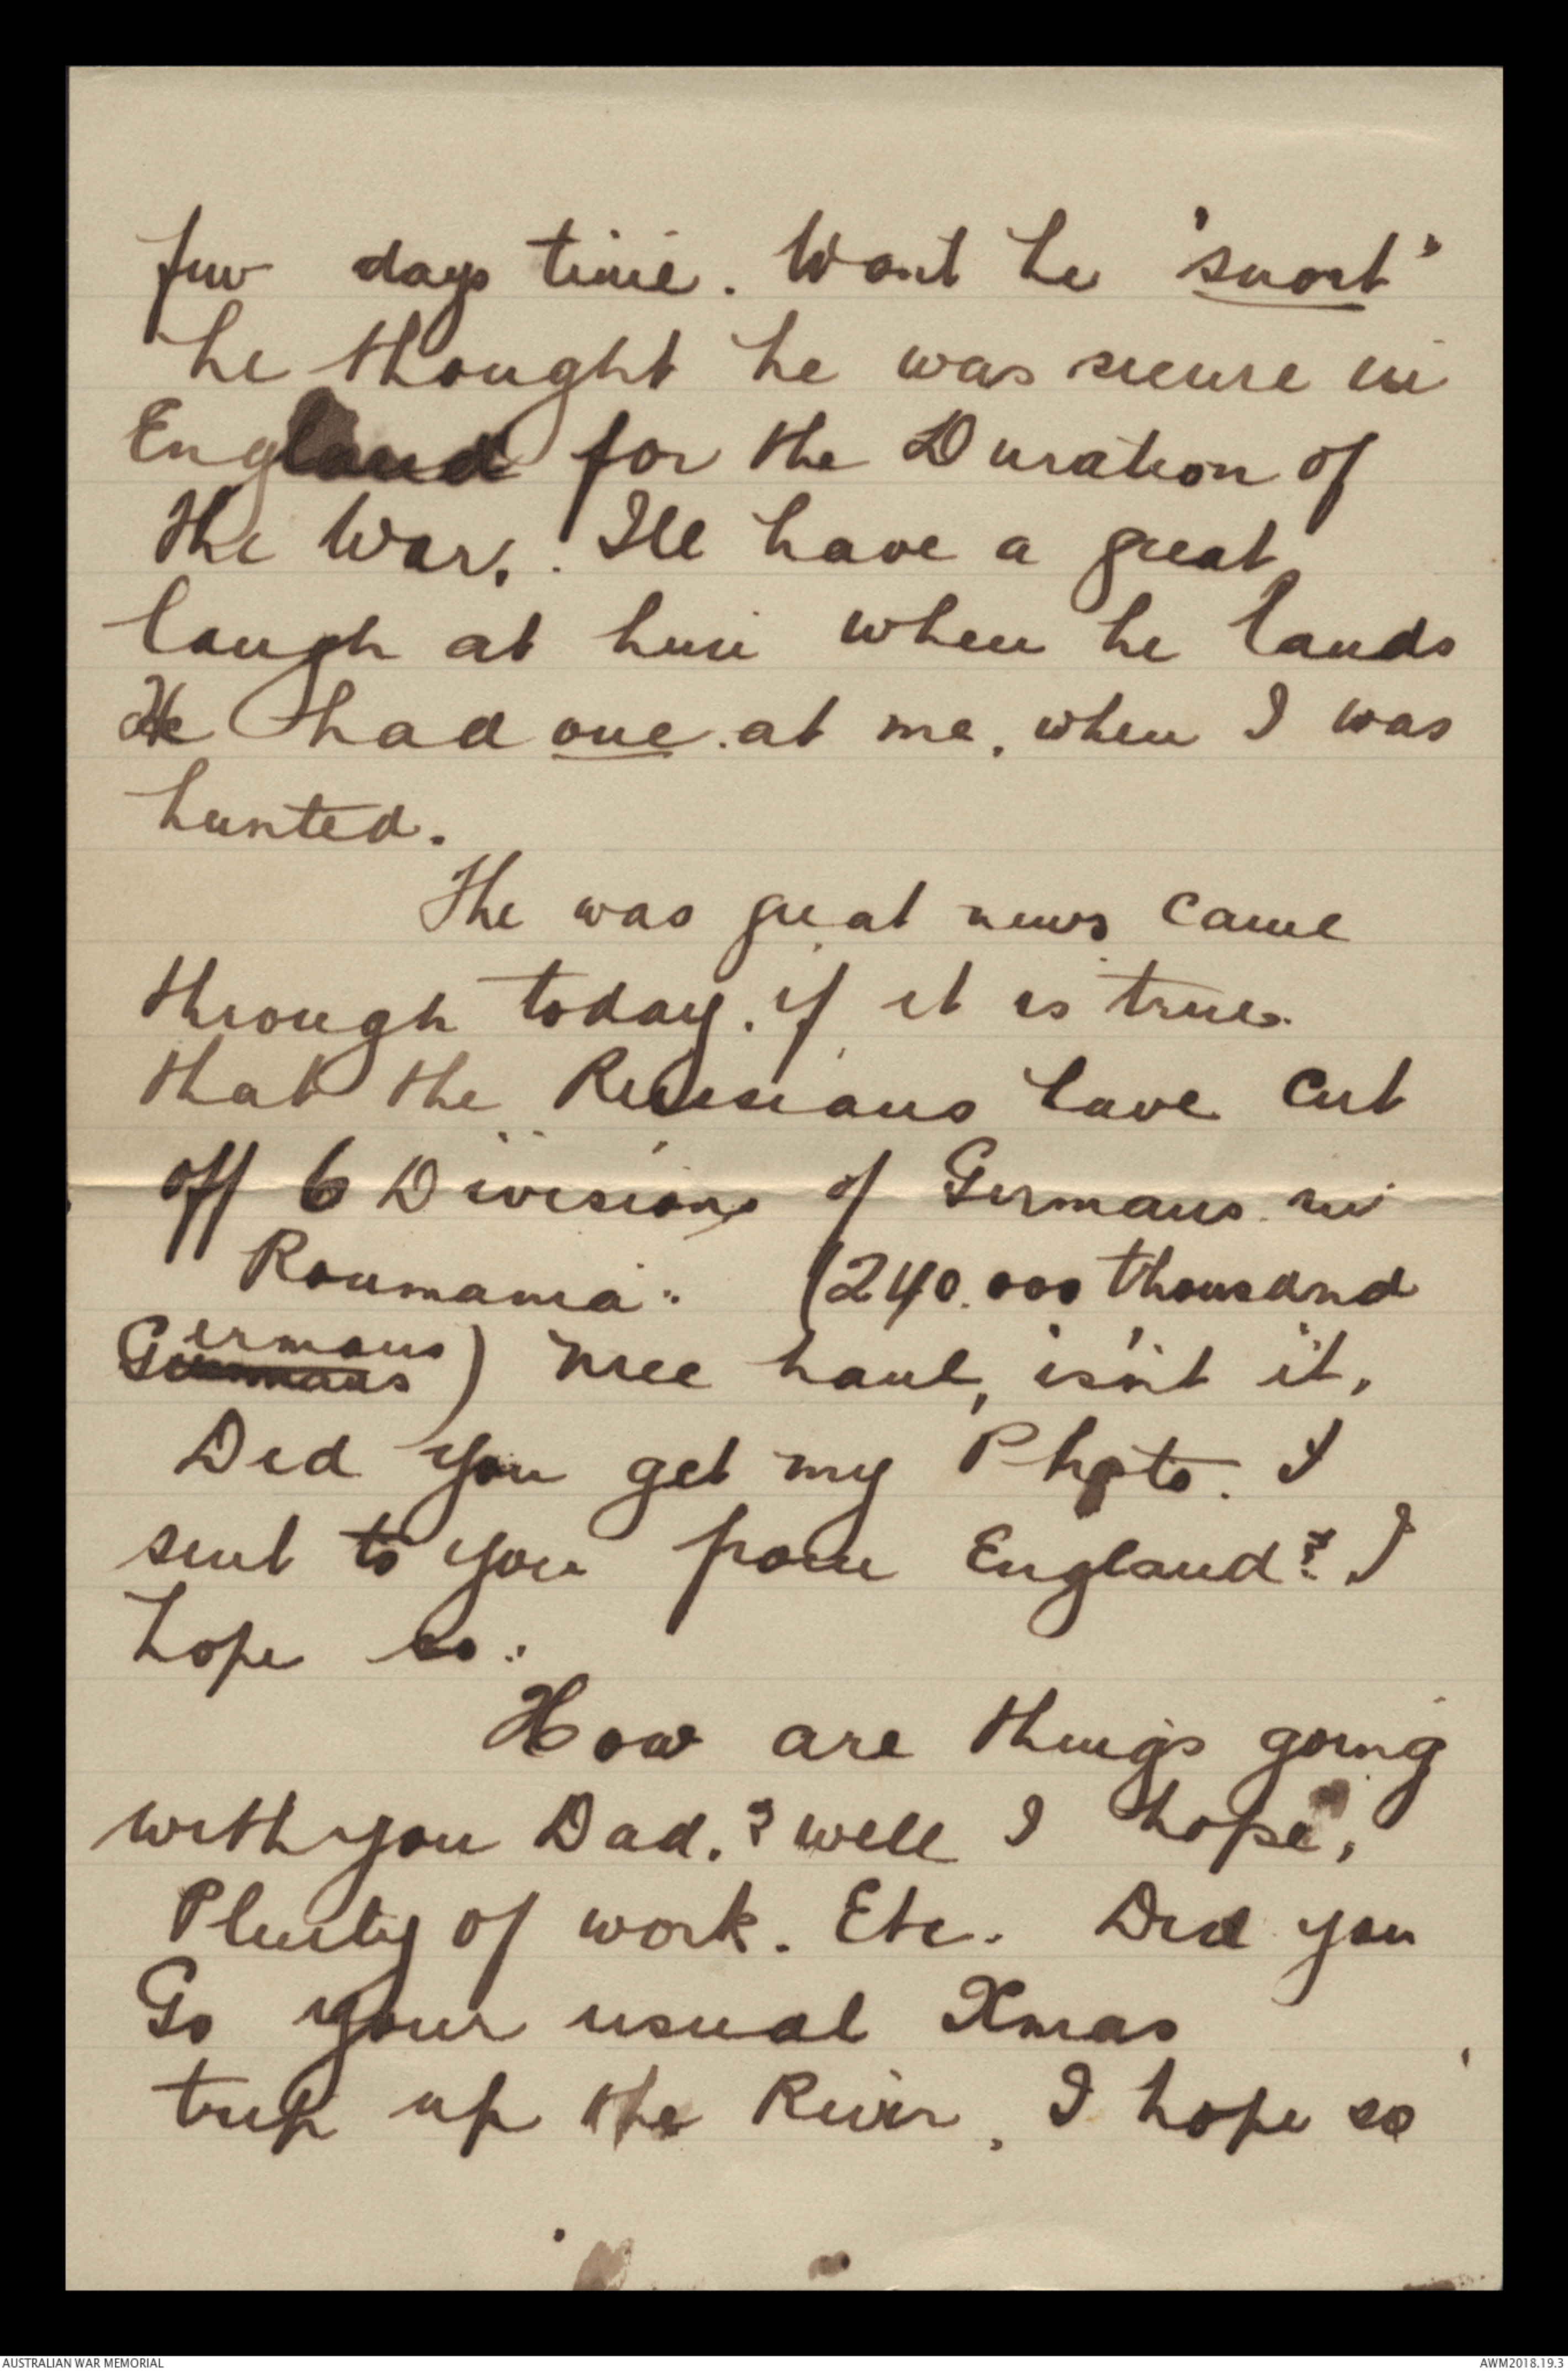 few days time. Wont he 'snort'
he thought he was secure in
England for the Duration of
the War. Ill have a great
laugh at him when he lands
He had one at me, when I was
hunted.
The was great news came
through today. if it is true.
that the Russians have cut
off 6 Divisions of Germans in
Roumania. (240.000 thousand
Germans) nice haul, isn't it,
Did you get my Photo. I
sent to you from England? I
hope so.
How are things going
with you Dad.? well I hope,
Plenty of work. Etc. Did you
Go your usual Xmas
trip up the River, I hope so
AUSTRALIAN WAR MEMORIAL
AWM2018.19.3